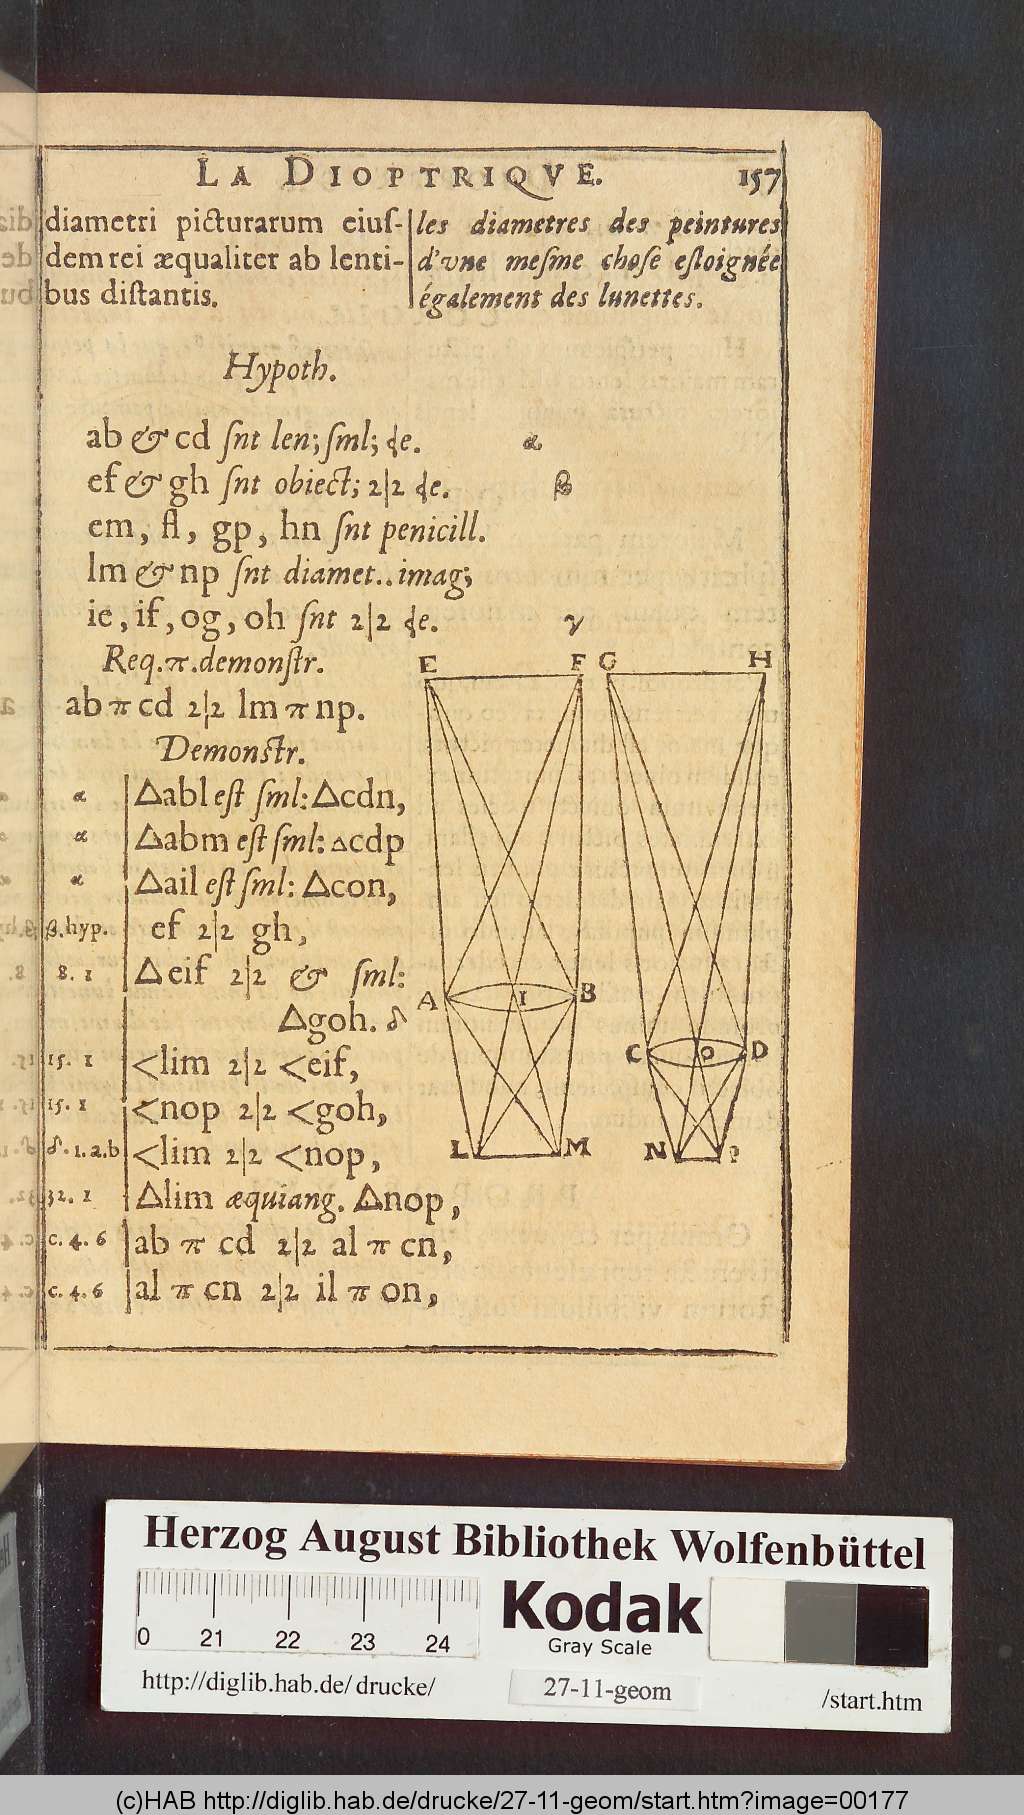 LA DIOPTRIQVE. 157
diametri picturarum eiuſ-
dem rei æqualiter ab lenti-
bus diſtantis.
les diametres des peintures
d'vne meſme choſe eſloignée
également des lunettes.
Hypoth.
ab & cd ſnt len; ſml; de. α
ef & gh ſnt obiect; 2|2 de. β
em, fl, gp, hn ſnt penicill.
lm & np ſnt diamet.. imag;
ie, if, og, oh ſnt 2|2 de. γ
Req. π. demonſtr.
ab π cd 2|2 lm π np.
Demonſtr.
α △abl eſt ſml: △cdn,
α △abm eſt ſml: △cdp
α △ail eſt ſml: △con,
β. hyp. ef 2|2 gh,
8. 1 △eif 2|2 & ſml:
△goh. δ
15. 1 <lim 2|2 <eif,
15. 1 <nop 2|2 <goh,
δ. 1. a. b <lim 2|2 <nop,
32. 1 △lim æquiang. △nop,
c. 4. 6 ab π cd 2|2 al π cn,
c. 4. 6 al π cn 2|2 il π on,
E F G H
A I B
C O D
L M N P
Herzog August Bibliothek Wolfenbüttel
0 21 22 23 24
Kodak
Gray Scale
http://diglib.hab.de/ drucke/ 27-11-geom /start.htm
(c)HAB http://diglib.hab.de/drucke/27-11-geom/start.htm?image=00177